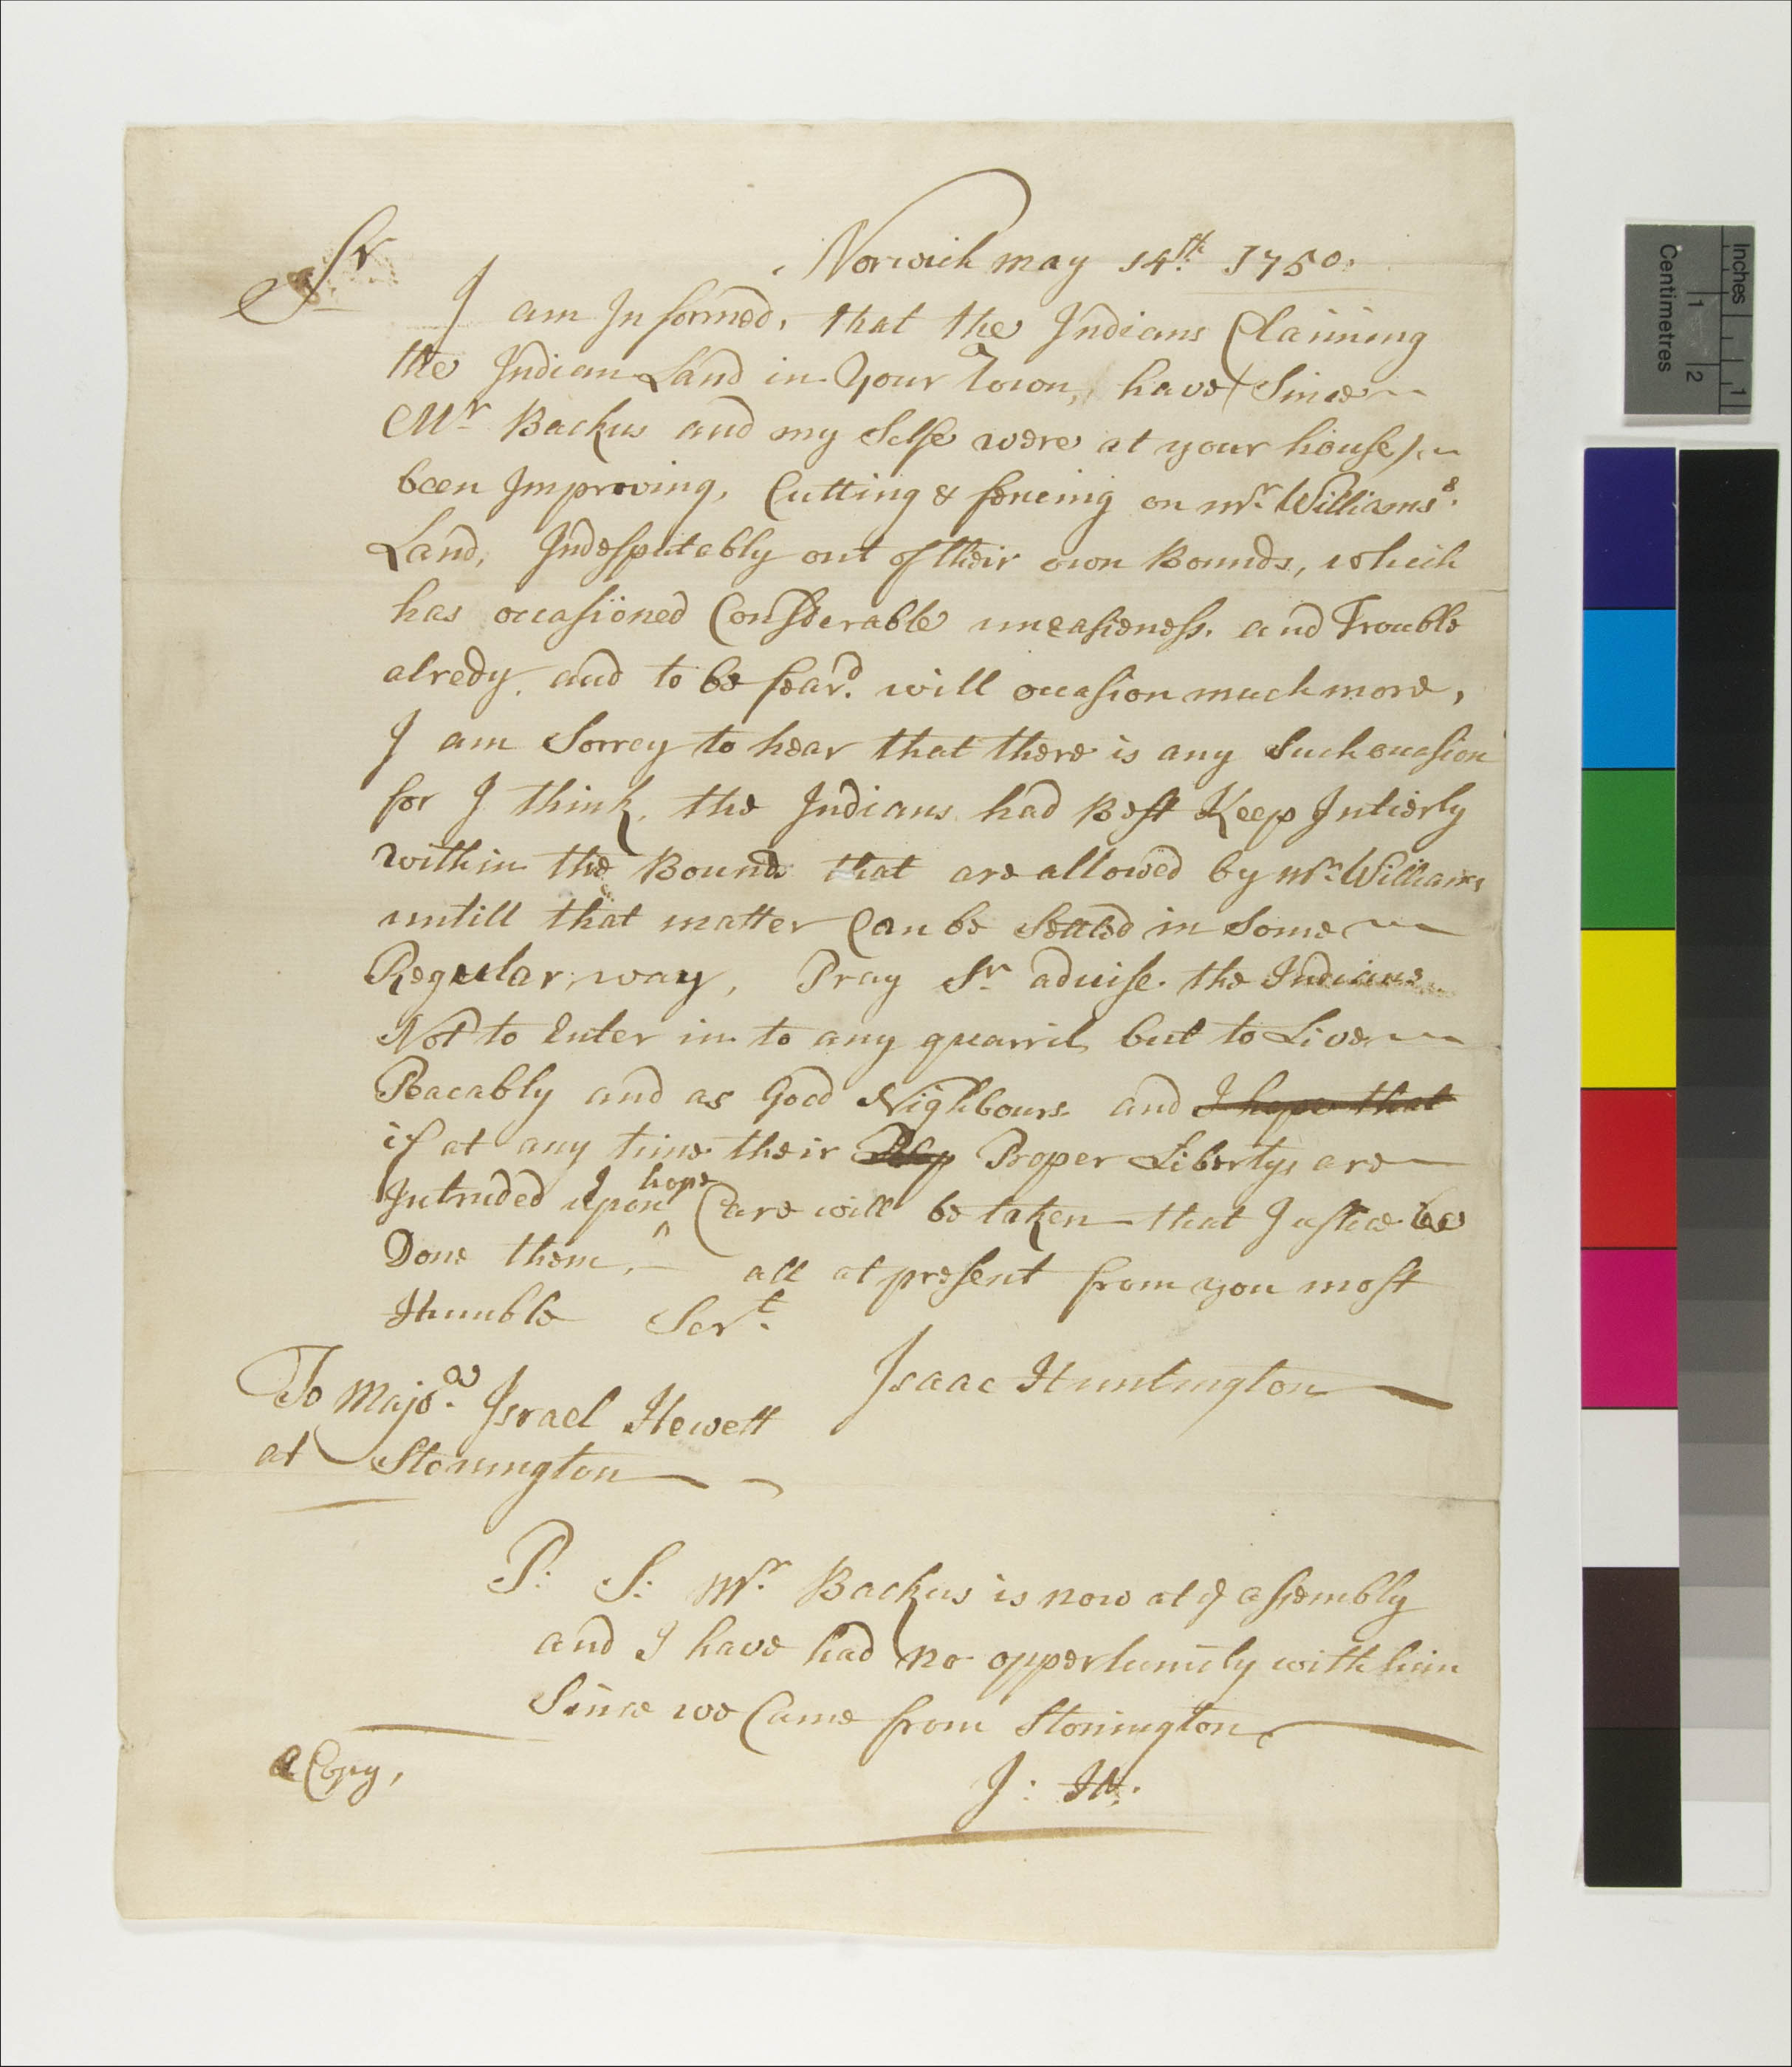 Norwich may 14th 1750.
Sr
I am Informed, that the Indians Claiming
the Indian Land in Your Town, have (Since
Mr Backus and my Selfe were at your house)
been Improving, Cutting & fenceing on mr. Williams's.
Land, Indesputably out of their own Bounds, which
has occasioned Considerable uneasieness. and Trouble
alredy, and to be fear'd. will occasion much more,
I am Sorrey to hear that there is any Such occasion
for I think, the Indians had Best Keep Intierly
within the Bounds that are allowed by mr. Williams
untill that matter Can be Settled in Some
Regular way, Pray Sr. advise. the Indians
Not to Enter in to any quarril but to Live
Peacably and as Good Nighbours and I hope that
if at any time their Prop Proper Libertys are
hope
Intruded upon ^ Care will be taken that Justice be
Done them, all at present from you most
Humble Servt.
Isaac Huntington
To Majr. Israel Hewett
at Stonington
P: S: Mr. Backus is now at ye assembly
and I have had no oppertunity with him
Since we Came from Stonington
a Copy,
J: H:
Inches
1
Centimetres
1
2